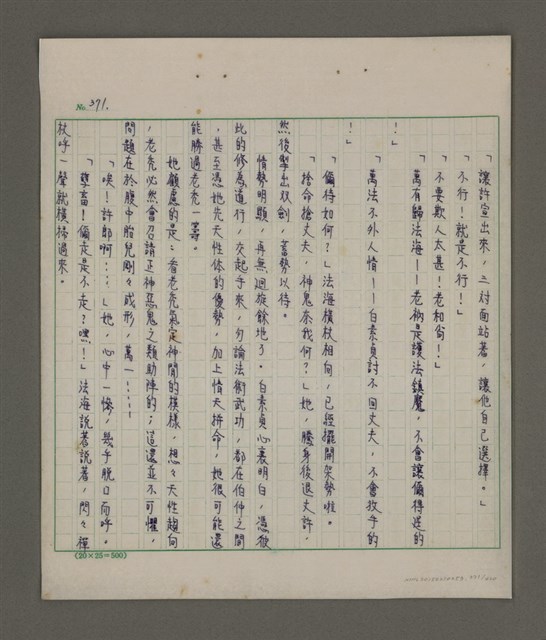 No. 371.
「讓許宣出來，三对面站著，讓他自己選擇。」
「不行！就是不行！」
「不要欺人太甚！老和尚！」
「萬有歸法海──老衲是護法鎮魔，不會讓儞得逞的
！」
「萬法不外人情──白素貞討不回丈夫，不會放手的
！」
「儞待如何？」法海橫杖相向，已經擺開架勢啦。
「捨命搶丈夫，神鬼奈我何？」她，騰身後退丈許，
然後掣出双劍，蓄勢以待。
情勢明顯，再無迴旋餘地了。白素貞心裏明白，憑彼
此的修為道行，交起手來，勿論法術武功，都在伯仲之間
，甚至憑她先天性体的優勢，加上情天拼命，她很可能還
能勝過老禿一籌。
她顧慮的是：看老禿氣定神閒的模樣，想々天性趨向
，老禿必然會召請正神惡鬼之類助陣的；這還並不可懼，
問題在於腹中胎兒剛々成形，萬一⋯⋯
「唉！許郎啊⋯⋯」她，心中一慘，幾乎脫口而呼。
「孽畜！儞走是不走？嘿！」法海說著說著，閃々禪
杖呼一聲就橫掃過來。
(20×25=500)